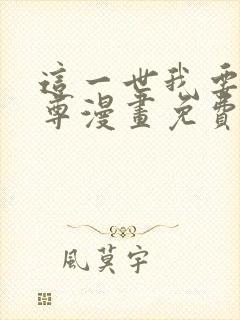 這一世我要
尊漫畫免費
風莫宇